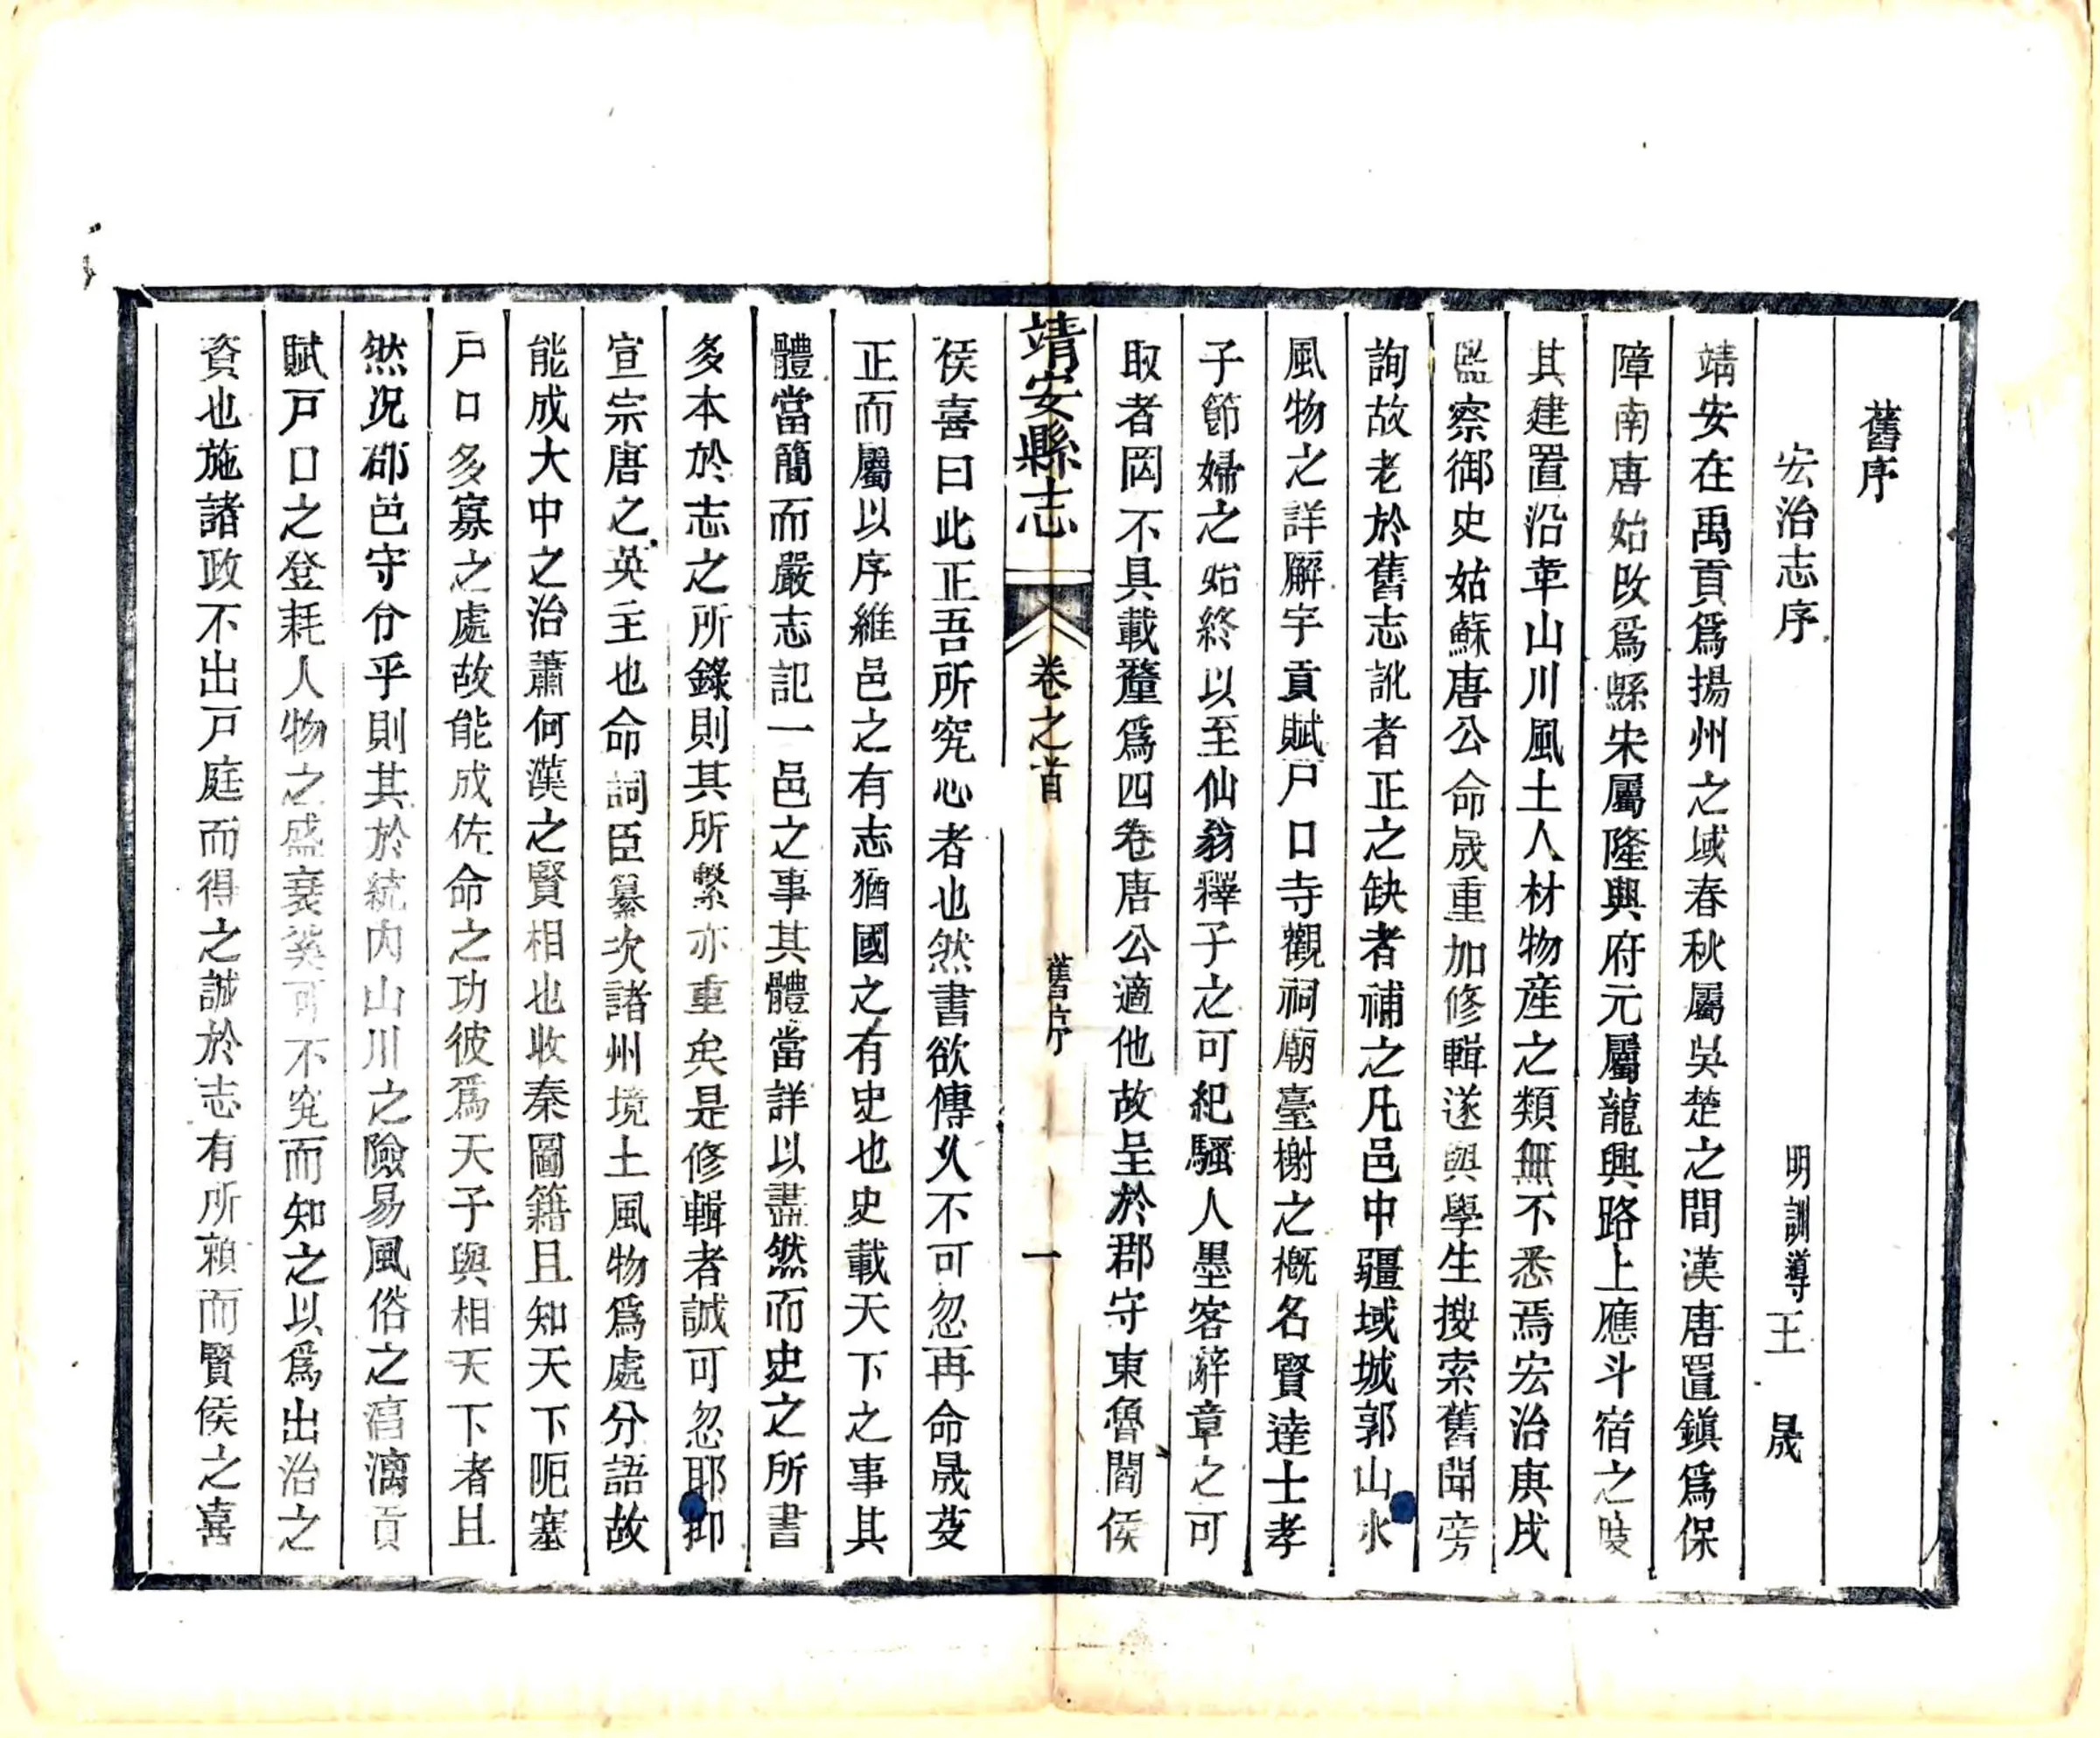 舊序
宏治志序
明訓導王 晟
靖安在禹貢爲揚州之域春秋屬吳楚之間漢唐置鎮爲保
障南唐始改爲縣宋屬隆興府元屬龍興路上應斗宿之陂
其建置沿革山川風土人材物産之類無不悉焉宏治庚戌
監察御史姑蘇唐公命晟重加修輯遂與學生搜索舊聞旁
詢故老於舊志訛者正之缺者補之凡邑中疆域城郭山水
風物之詳廨宇貢賦戸口寺觀祠廟臺榭之槪名賢達士孝
子節婦之始終以至仙翁釋子之可紀騷人墨客辭章之可
取者罔不具載釐爲四卷唐公適他故呈於郡守東魯閻侯
靖安縣志 卷之首 舊序 一
侯喜曰此正吾所究心者也然書欲傳乆不可忽再命晟芟
正而屬以序維邑之有志猶國之有史也史載天下之事其
體當簡而嚴志記一邑之事其體當詳以盡然而史之所書
多本於志之所錄則其所繫亦重矣是修輯者誠可忽耶抑
宣宗唐之英主也命詞臣纂次諸州境土風物爲處分語故
能成大中之治蕭何漢之賢相也收秦圖籍且知天下阨塞
戸口多寡之處故能成佐命之功彼爲天子與相天下者且
然況郡邑守令乎則其於統内山川之險易風俗之湻漓貢
賦戸口之登耗人物之盛衰奚可不究而知之以爲出治之
資也施諸政不出戸庭而得之誠於志有所賴而賢侯之喜